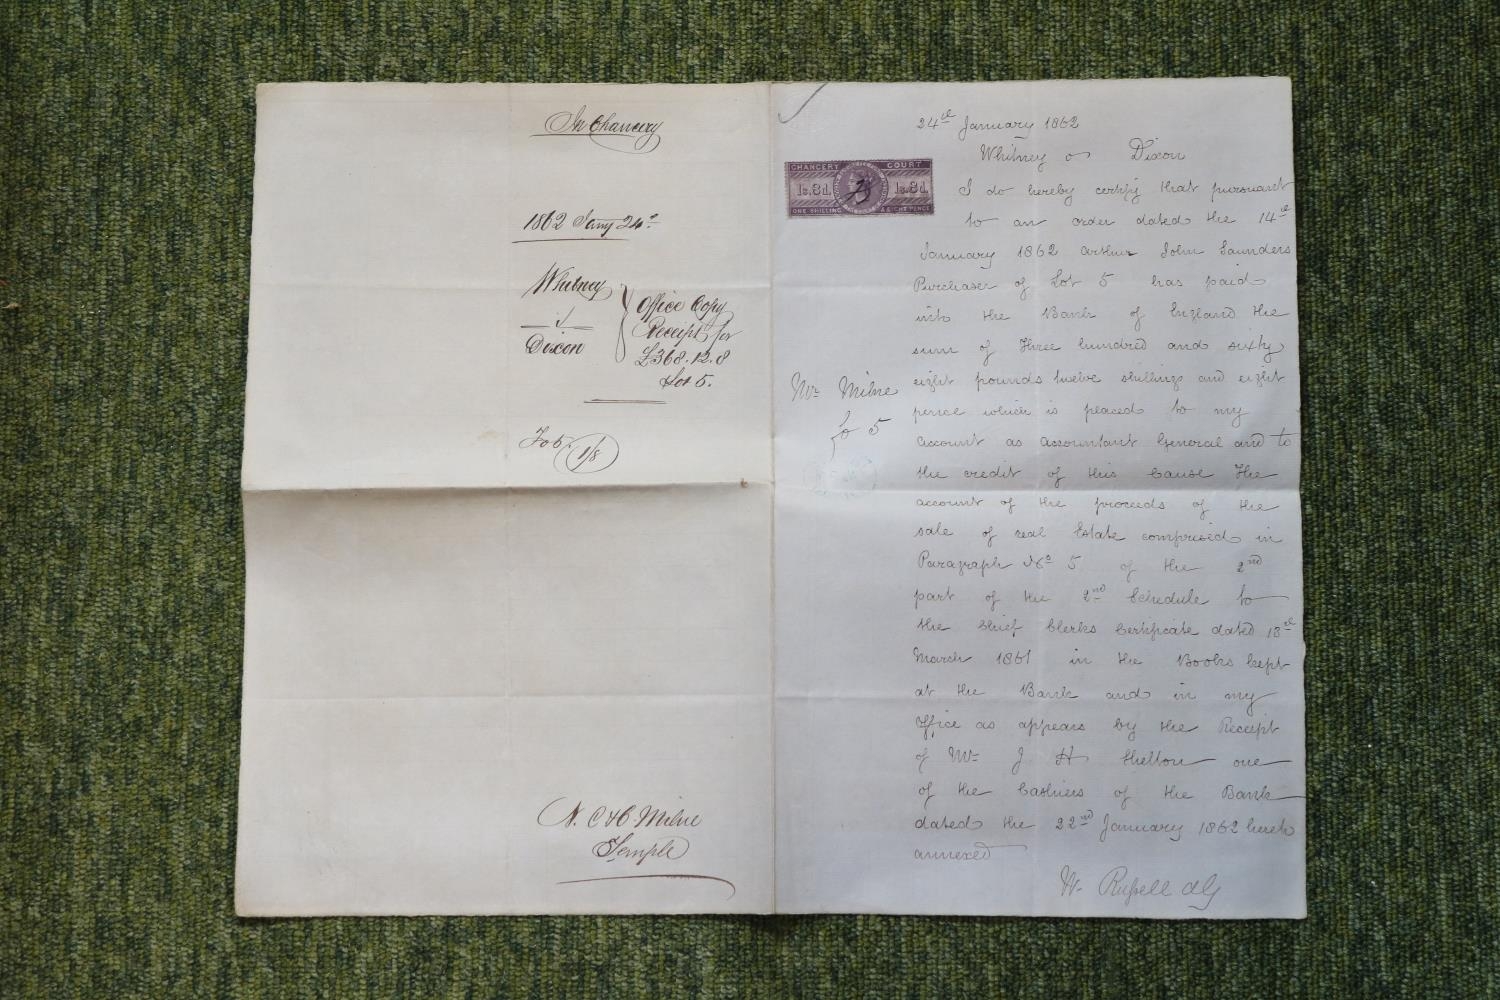 In Chancery
1862 Jany 24th
Whitney
v
Dixon
Office Copy
Receipt for
£368.12.8
Lot 5.
Fo 5. 1/8
N. C & C. Milne
Temple
24th January 1862
Whitney v Dixon
CHANCERY COURT
1s. 8d. 1s. 8d.
ONE SHILLING & EIGHT PENCE
I do hereby certify that pursuant
to an order dated the 14th
January 1862 Arthur John Saunders
Purchaser of Lot 5 has paid
into the Bank of England the
sum of Three hundred and sixty
eight pounds twelve shillings and eight
pence which is placed to my
account as Accountant General and to
the credit of this Cause The
account of the proceeds of the
sale of real Estate comprised in
Paragraph No 5 of the 2nd
part of the 2nd Schedule to
the Chief Clerks Certificate dated 18th
March 1861 in the Books kept
at the Bank and in my
Office as appears by the Receipt
of Mr J H Shelton one
of the Cashiers of the Bank
dated the 22nd January 1862 hereto
annexed
W. Russell AG
Mr Milne
fo 5